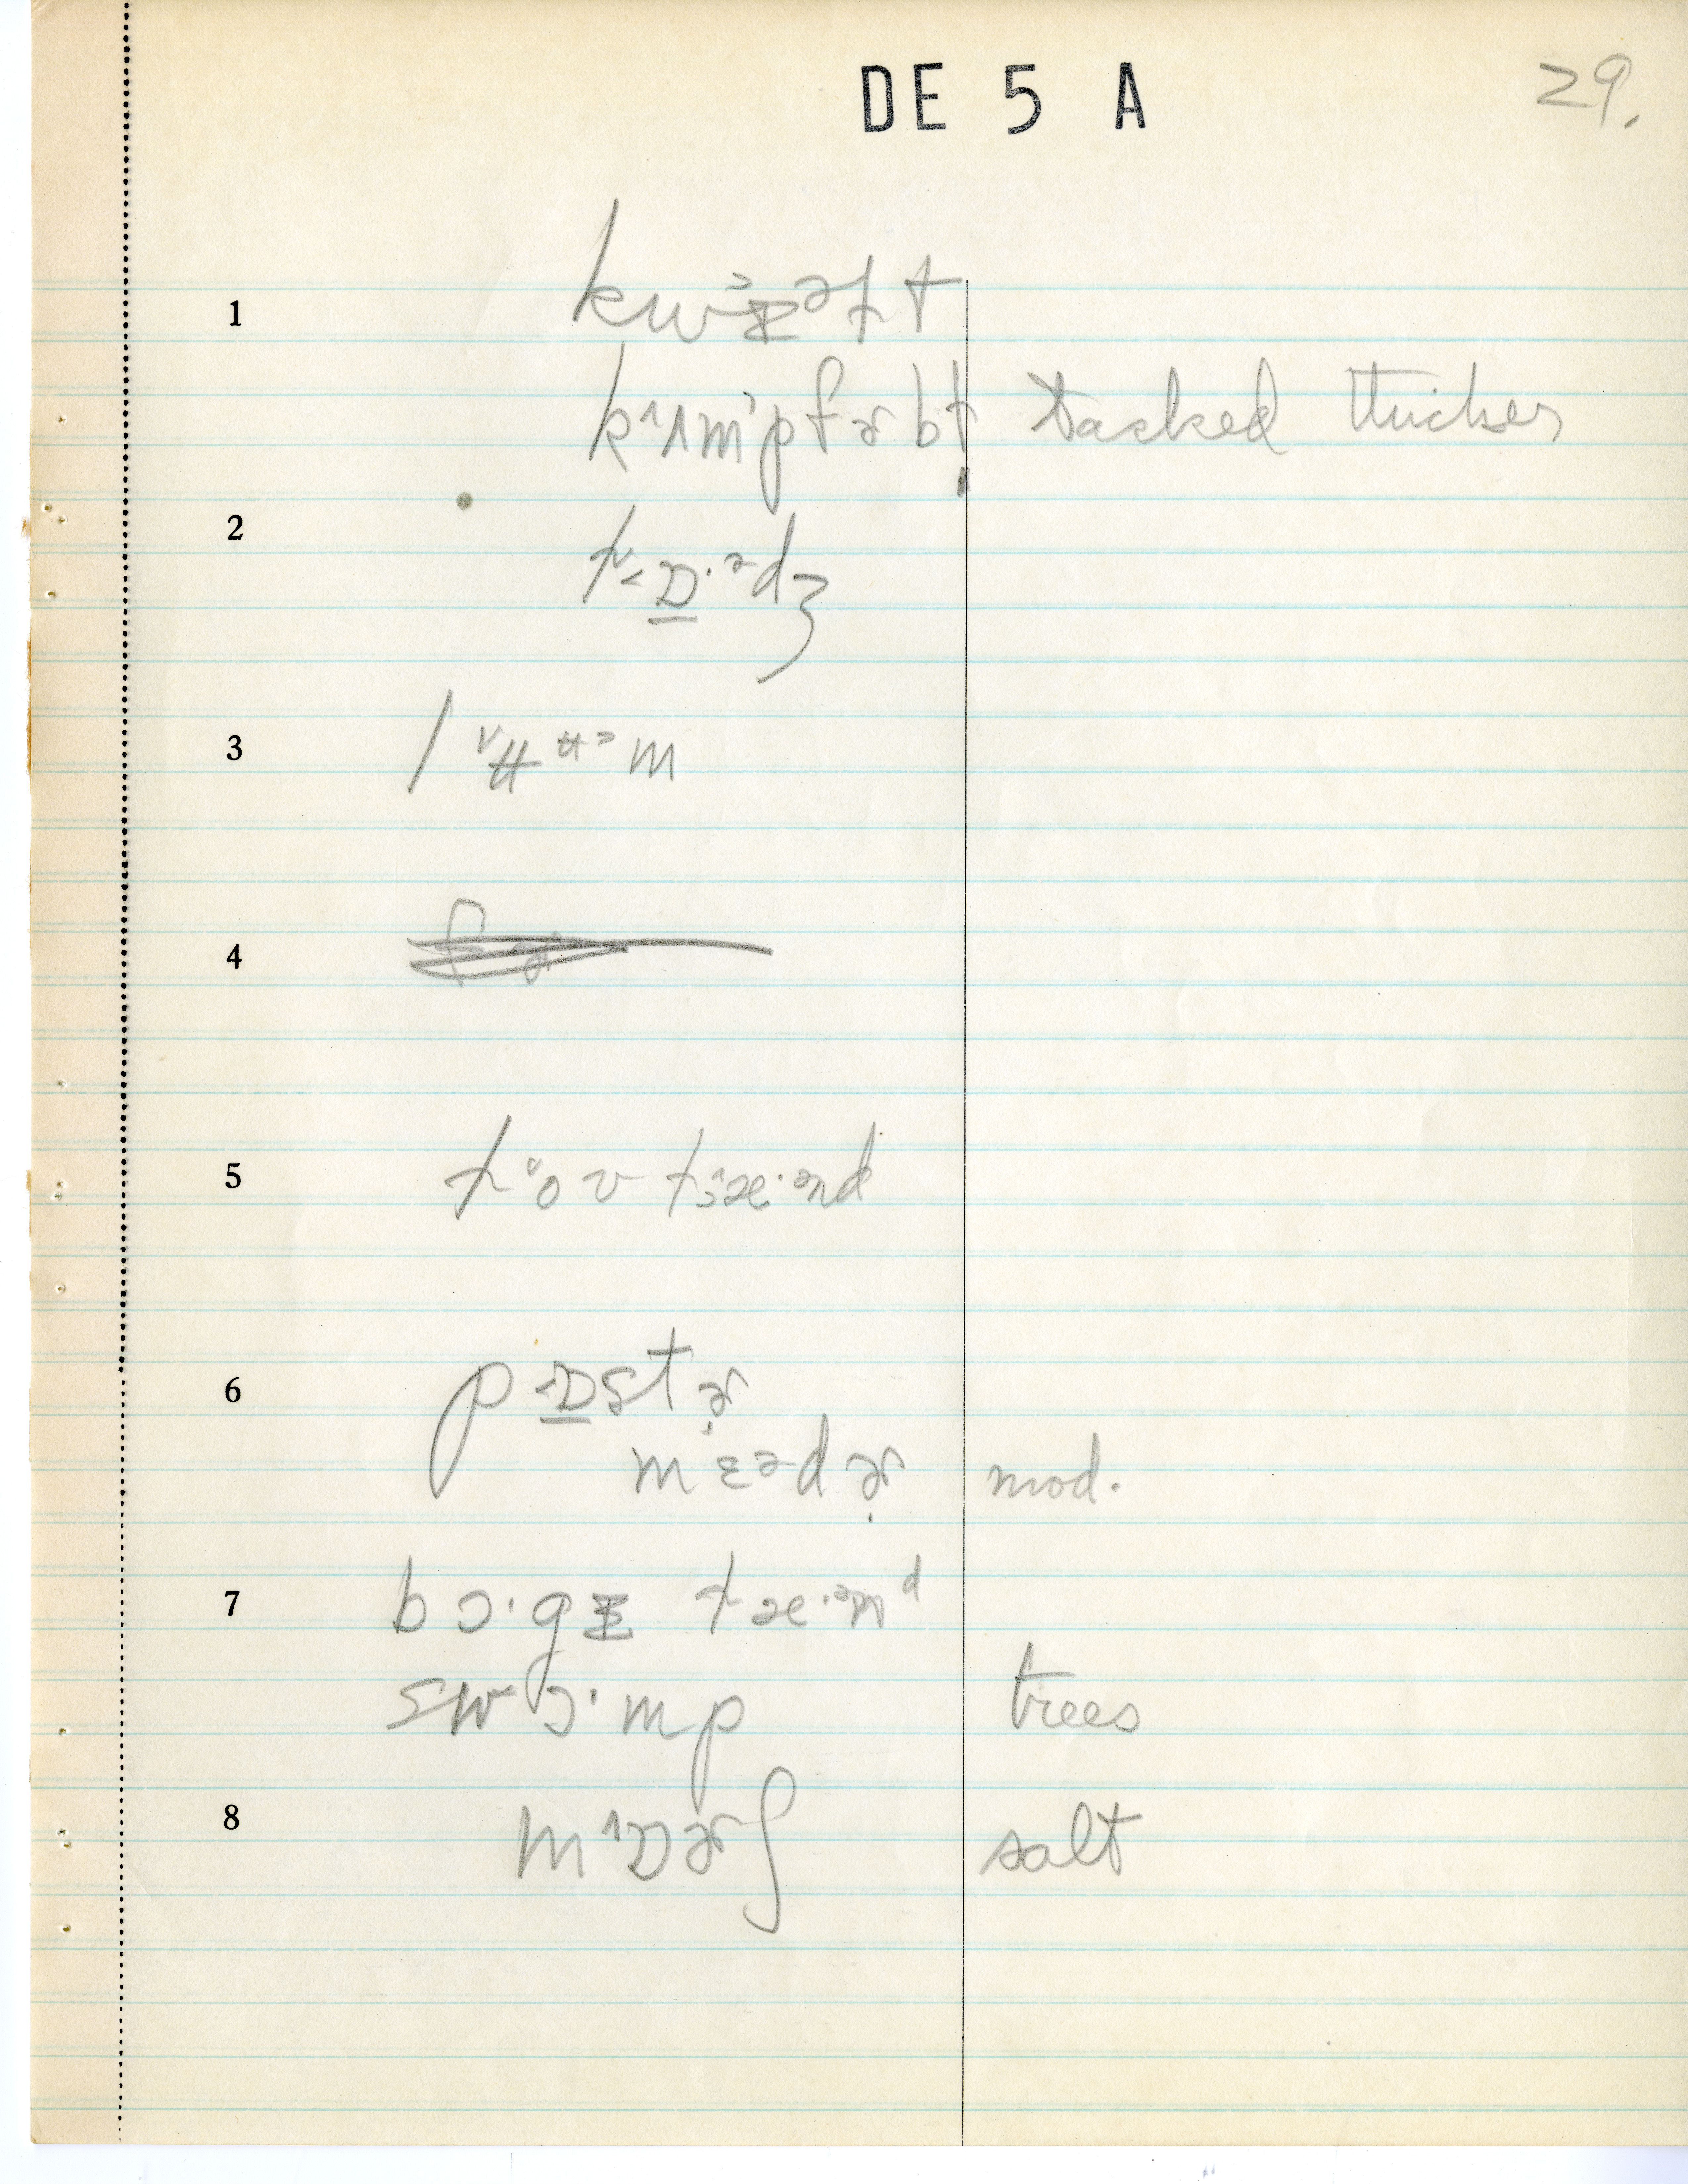 DE 5 A
29.
1 kwɪ̵əlt
kʌmpfɚbt tacked thicker
2 lɒ·ədʒ
3 lʉʉm
4
5 loʊ læ·ənd
6 pɒstɚ
mɛədɚ mod.
7 bɔ·gɪ̵ læ·ənd
swɔ·mp trees
8 mɒɚʃ salt